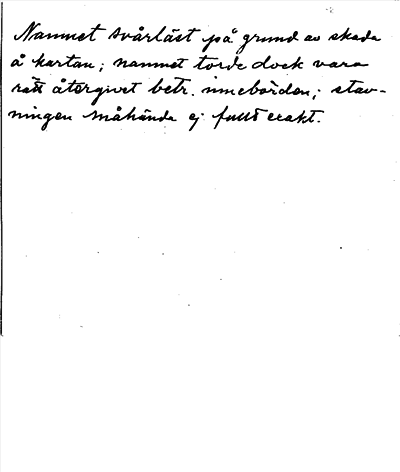 Namnet svårläst på grund av skada
å kartan; namnet torde dock vara
rätt återgivet betr. innebörden; stav-
ningen måhända ej fullt exakt.